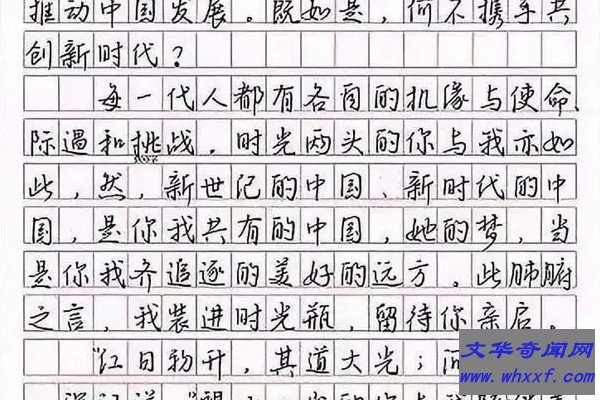 推动中国发展。既如是,何不携手共
创新时代?
每一代人都有各自的机缘与使命、
际遇和挑战。时光两头的你与我亦如
此,然,新世纪的中国、新时代的中
国,是你我共有的中国,她的梦,当
是你我齐追逐的美好的远方。此肺腑
之言,我装进时光瓶,留待你亲启。
"红日初升,其道大光;河
文华奇闻网
www.whxxf.com